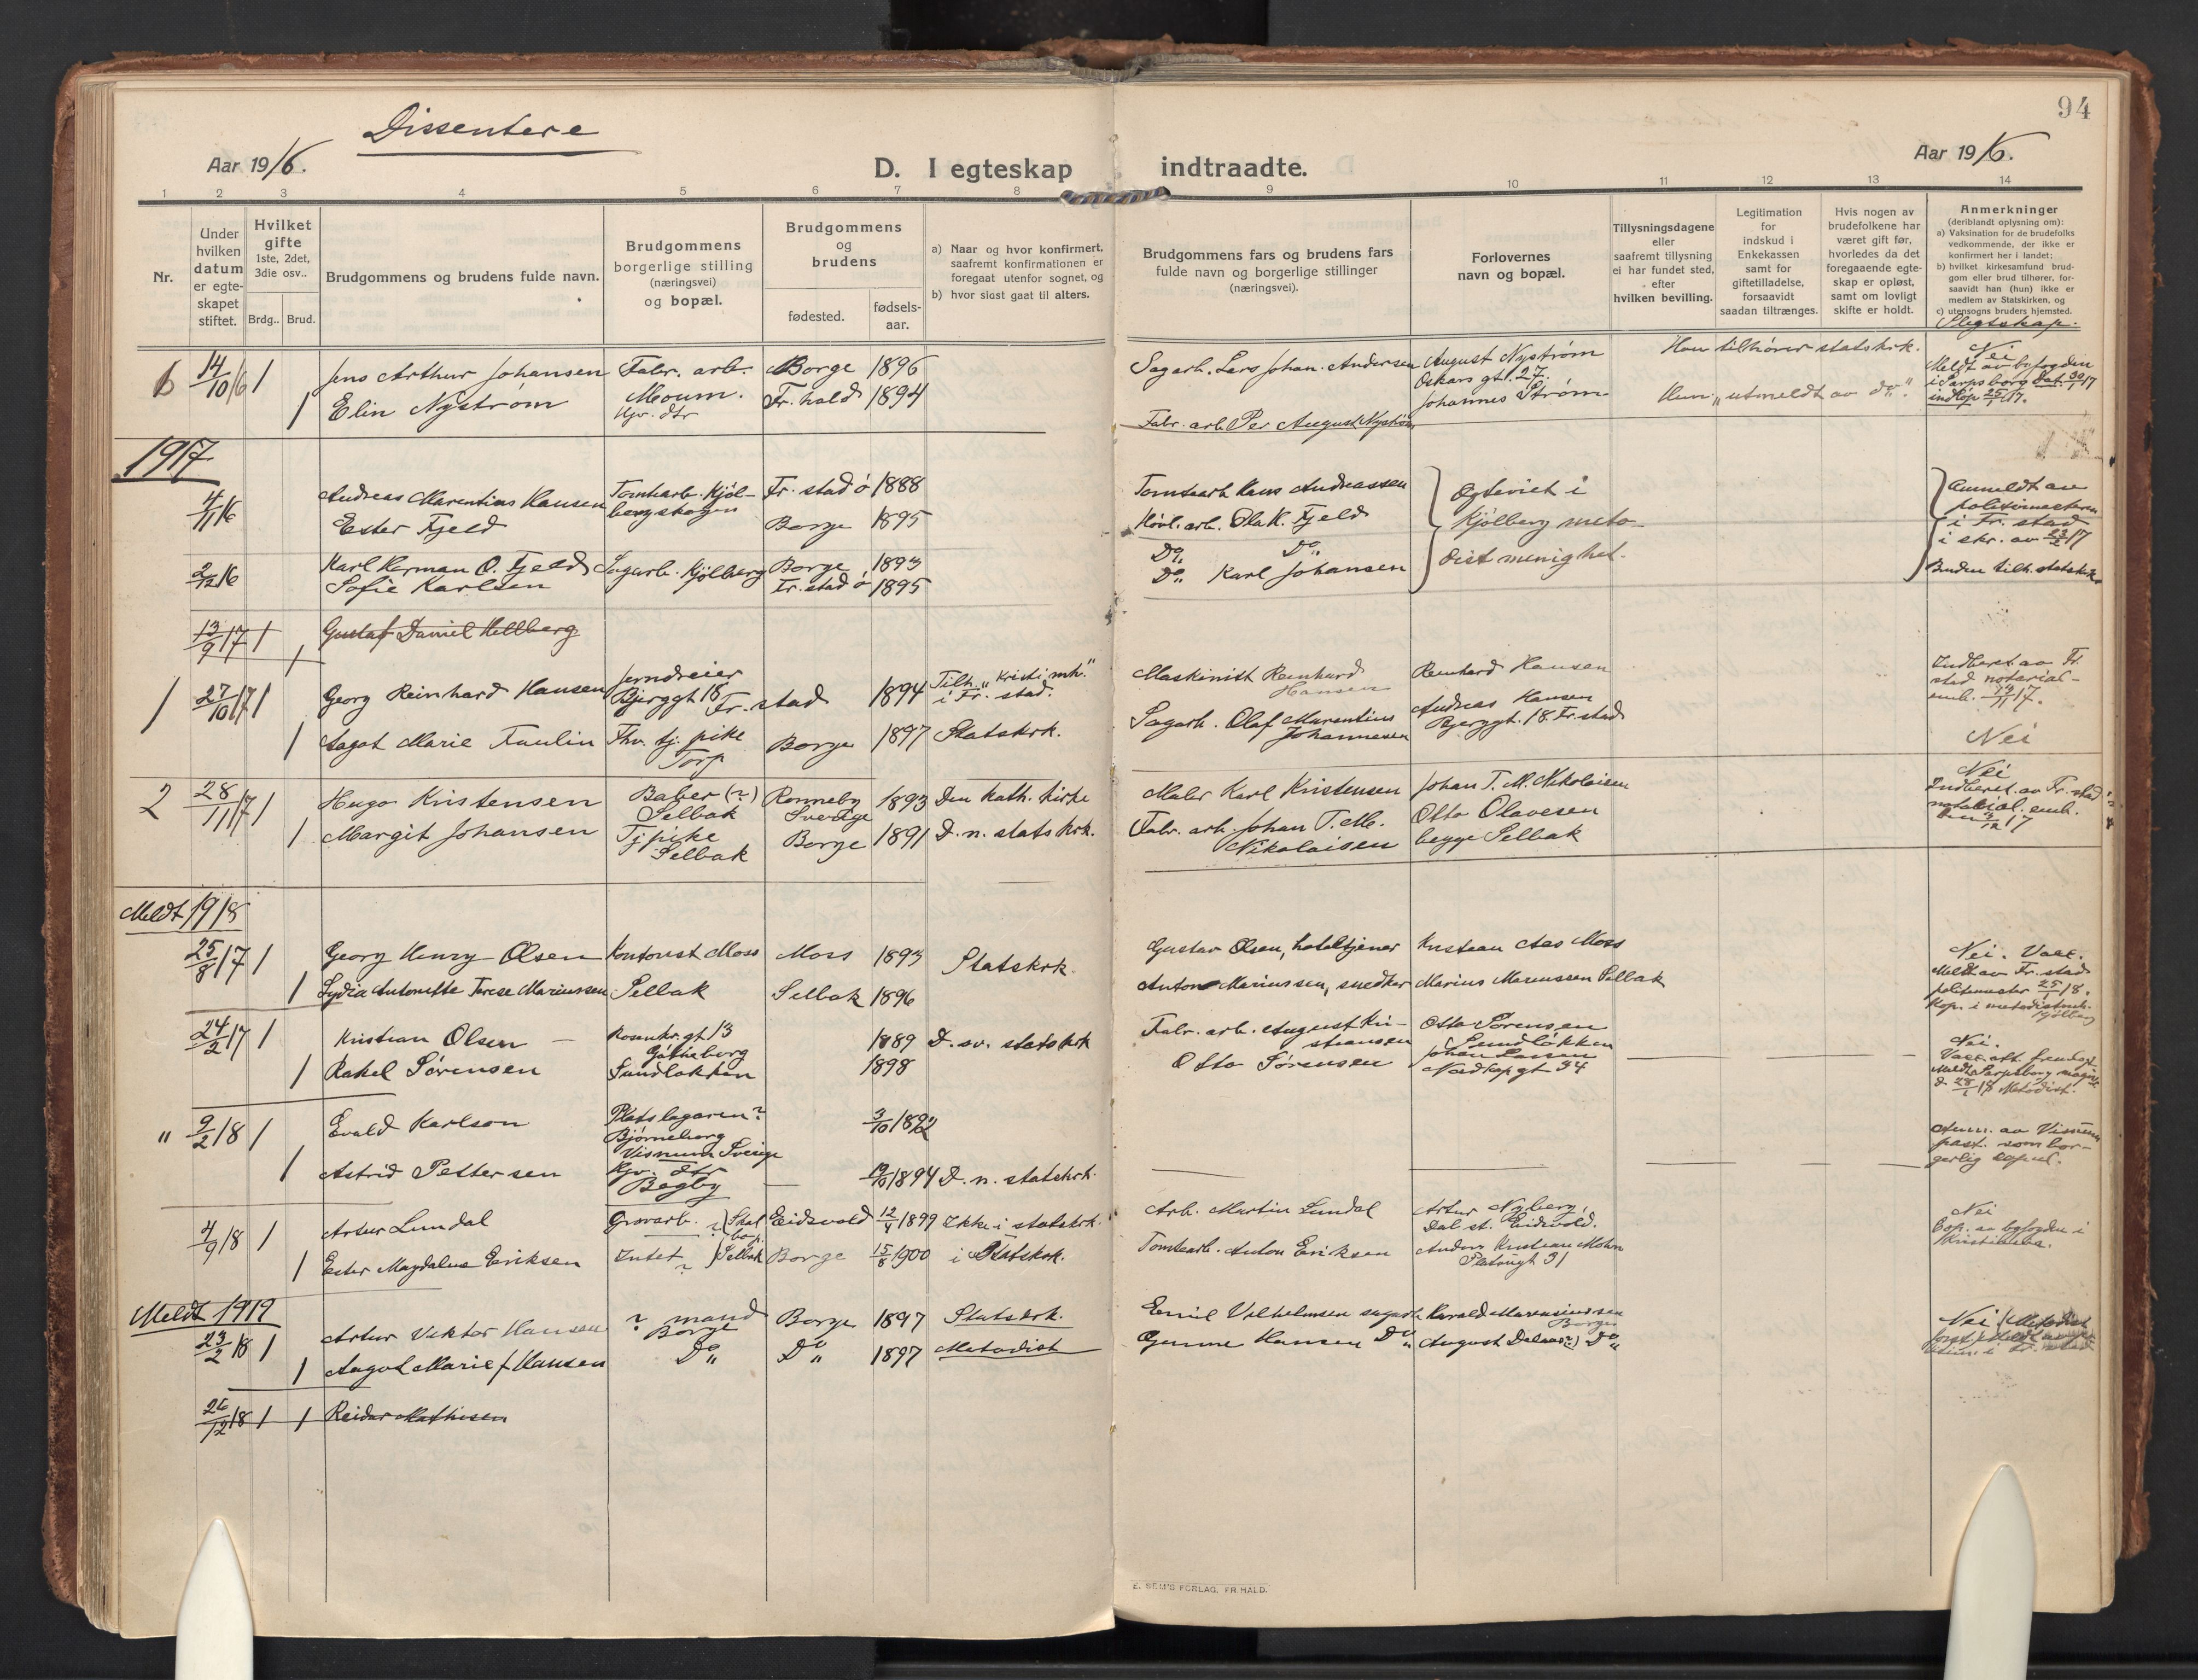 94
Dissentere
Aar 1916.
D. I egteskap indtraadte.
Aar 1916.
1 2 3 4 5 6 7 8 9 10 11 12 13 14
Nr.
Under hvilken datum er egteskapet stiftet.
Hvilket gifte 1ste, 2det, 3die osv..
Brdg.. Brud.
Brudgommens og brudens fulde navn.
Brudgommens borgerlige stilling (næringsvei) og bopæl.
Brudgommens og brudens
fødested.
fødsels-aar.
a) Naar og hvor konfirmert, saafremt konfirmationen er foregaat utenfor sognet, og
b) hvor sidst gaat til alters.
Brudgommens fars og brudens fars fulde navn og borgerlige stillinger (næringsvei).
Forlovernes navn og bopæl.
Tillysningsdagene eller saafremt tillysning ei har fundet sted, efter hvilken bevilling.
Legitimation for indskud i Enkekassen samt for giftetilladelse, forsaavidt saadan tiltrænges.
Hvis nogen av brudefolkene har været gift før, hvorledes da det foregaaende egteskap er opløst, samt om lovligt skifte er holdt.
Anmerkninger
(deriblandt oplysning om):
a) Vaksination for de brudefolks vedkommende, der ikke er konfirmert her i landet:
b) hvilket kirkesamfund brudgom eller brud tilhører, forsaavidt han (hun) ikke er medlem av Statskirken, og
c) utensogns bruders hjemsted.
Slegtskap.
6 14/10 16 1 Jens Arthur Johansen Fabr. arb. Borge 1896 Sagarb. Lars Johan Andersen August Nystrøm Han tilhører statskrk. Nei
Moum. Oskars gt. 27. Meldt av byfogden
1 Elin Nystrøm Gv. dtr Fr.hald 1894 Fabr. arb. Per August Nystrøm Johannes Strøm Hun „ utmeldt av do „. i Sarpsborg Dat. 30/1 17
indkop 25/1 17.
1917
4/11 16 Andreas Marentius Hansen Tomtearb. Kjøl- Fr. stad ø 1888 Tomtearb Hans Andreassen Egteviet i Anmeldt av
bergskogen politimesteren
Ester Fjeld Borge 1895 Høvl. arb. Ola K. Fjeld Kjølberg meto- i Fr. stad
i skr. av 23/2 17
2/12 16 Karl Herman O. Fjeld Sagarb. Kjølberg Borge 1893 Do „ Do „ dist menighet.
Sofie Karlsen Fr. stad ø 1895 Do „ Karl Johansen Bruden tilh. statskrk.
13/9 17 1 Gustaf Daniel Hellberg
1
1 27/10 17 1 Georg Reinhard Hansen Jerndreier Bjerggt 18 Fr. stad 1894 Tilh. „Kristi mh.“ i Fr. stad. Maskinist Reinhard Hansen Reinhard Hansen Indberet av Fr. stad notarial- emb. 17.
1 Aagot Marie Faulin Fhv. tj. pike Torp Borge 1897 Statskrk. Sagarb. Olaf Marentius Johannesen Andreas Hansen Bjerggt. 18. Fr. stad Nei
2 28/11 17 1 Hugo Kristensen Baker (?) Selbak Ronneby Sverige 1893 Den kath. kirke Maler Karl Kristensen Johan T. M. Nikolaisen Nei
Indberet av Fr. stad notarial. emb. 17
1 Margit Johansen Tj pike Selbak Borge 1891 D. n. statskrk. Fabr. arb. Johan T. M. Nikolaisen Otto Olavesen begge Selbak
Meldt 1918
25/8 17 1 Georg Henry Olsen Kontorist Moss Moss 1893 Statskrk. Gustav Olsen, hoteltjener Kristian Aas Moss Nei. Vacc.
Meldt av Fr. stad
1 Lydia Antonette Terese Mariussen Selbak Selbak 1896 Anton Mariussen, snedker Marius Mariussen Selbak politimester 25/1 18.
Kop. i metodistmh. Kjølberg
24/2 17 1 Kristian Olsen Rosenkr. gt 13 Göteborg 1889 D. sv. statskrk Fabr. arb. August Kristiansen Otto Sørensen Sundløkken Nei.
1 Rakel Sørensen Sundløkken 1898 Otto Sørensen Johan Larsen Nordkap gt 34 Vacc. att. fremlagt
Meldt Sarpsborg magist.
d. 28/1 18 Metodist.
" 9/2 18 1 Evald Karlson Platslagaren? Bjørneborg Visnum Sverige 3/10 1892 Anm. av Visnums past. som borgerlig
1 Astrid Pettersen Gv. dtr Begby 1894 D. n. statskrk.
4/9 18 1 Artur Lundal Gravarb. ? Skal bop. Selbak Eidsvold 12/5 1899 Ikke i statskrk. Arb. Martin Lundal Artur Nyberg, Dal st. Eidsvold. Nei
Kop. av byfogden i Kristiania.
1 Ester Magdalene Eriksen Intet ? Borge 15/8 1900 i Statskrk. Tomtearb. Anton Eriksen Anders Kristian Mohn Platousgt 31
Meldt 1919
23/2 18 1 Artur Viktor Hansen ? mand Borge Borge 1897 Statskrk. Emil Vilhelmsen sagarb Harald Marensiussen Borge Nei / Metodist
1 Aagot Marie f Hansen Do „ Do „ 1897 Metodist Gunne Hansen Do „ August Delaas(?) Do „
26/12 18 1 1 Reidar Mathisen
E. SEM'S FORLAG, FR.HALD.